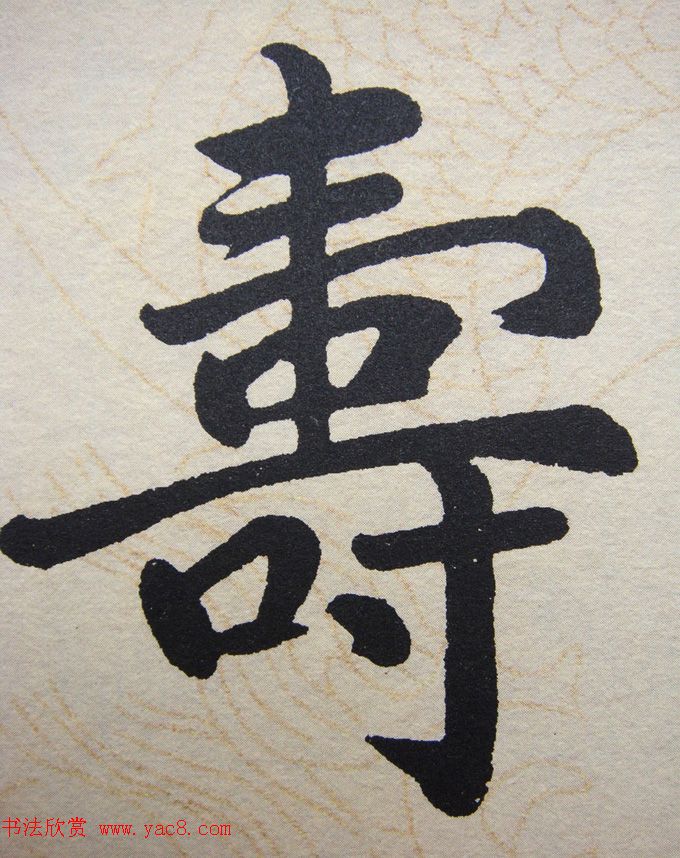 壽
书法欣赏 www.yac8.com